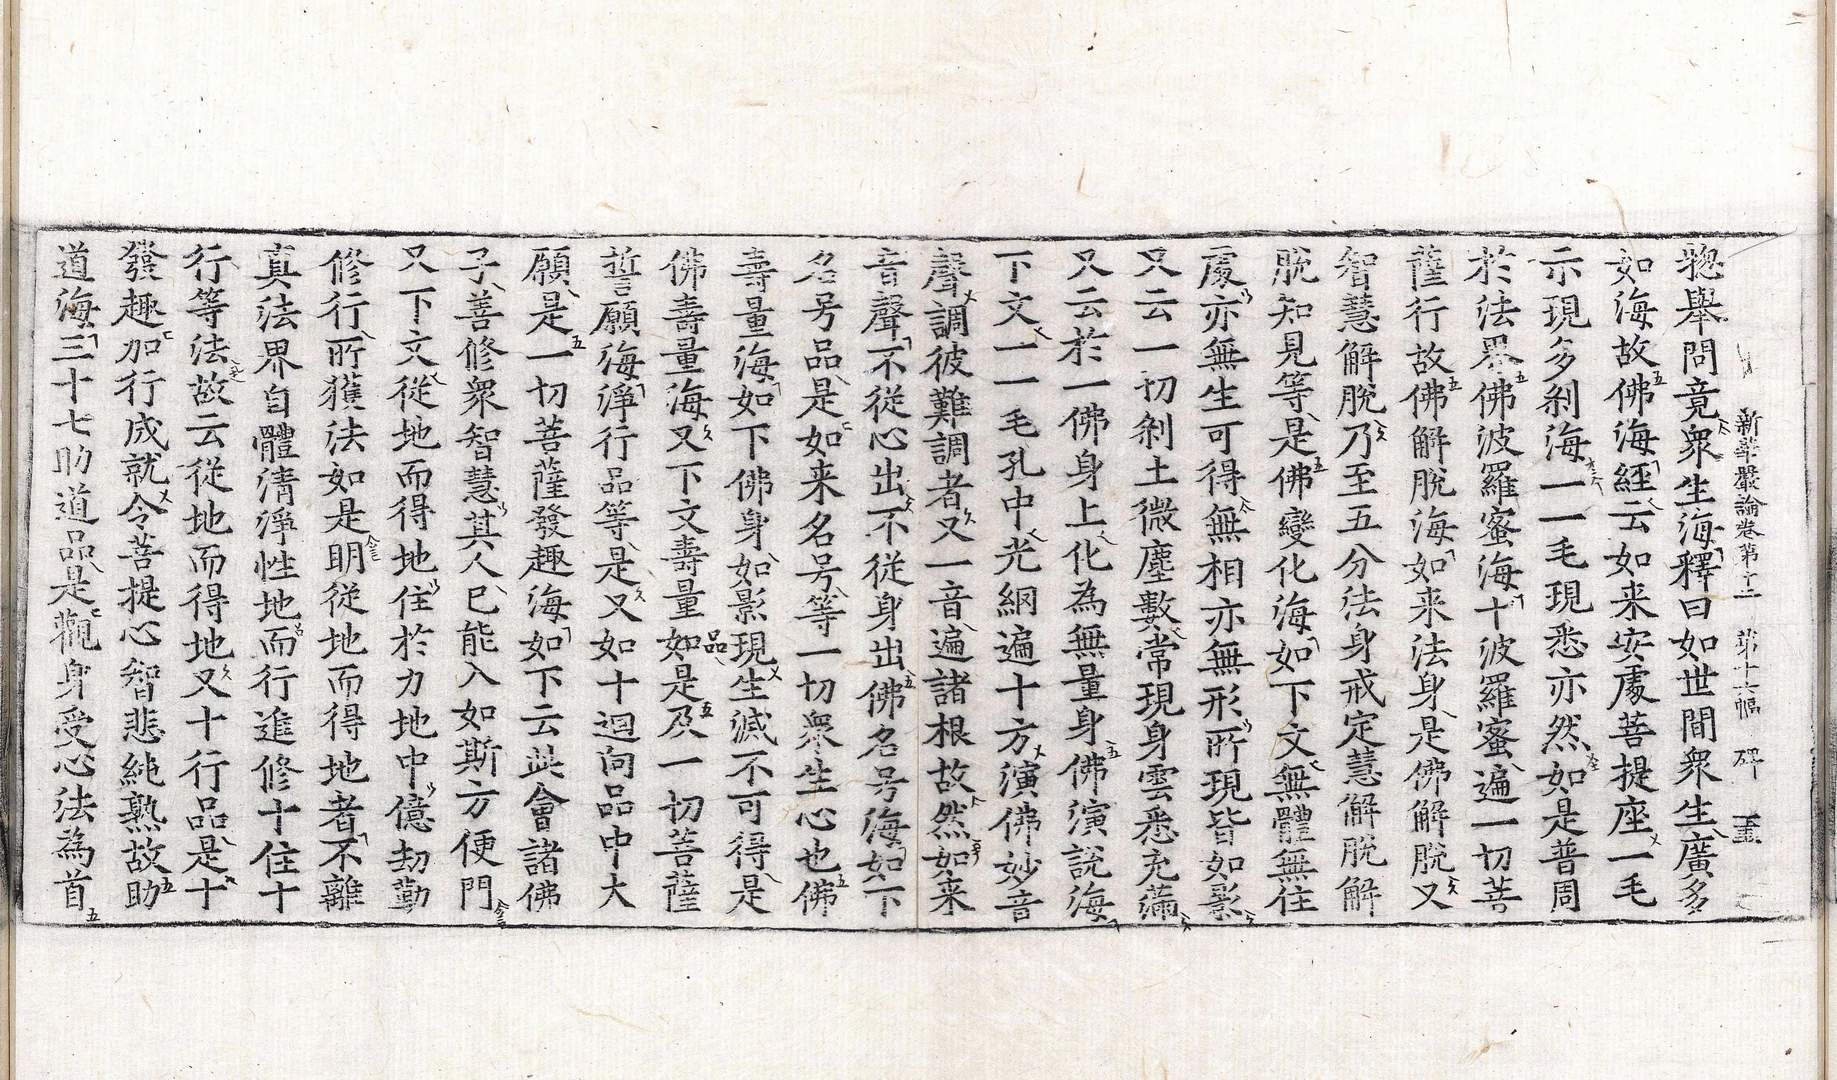 新華嚴論卷第十二　第十六幅　碑
揔舉問竟衆生海釋曰如世間衆生廣多
如海故佛海経云如来安處菩提座一毛
示現多刹海一一毛現悉亦然如是普周
扵法界佛波羅蜜海十波羅蜜遍一切菩
薩行故佛解脫海如来法身是佛解脫又
智慧解脫乃至五分法身戒定慧解脫解
脫知見等是佛變化海如下文無體無住
處亦無生可得無相亦無形所現皆如影
又云一切刹土微塵數常現身雲悉充滿
又云扵一佛身上化為無量身佛演說海
下文一一毛孔中光網遍十方演佛妙音
聲調彼難調者又一音遍諸根故然如来
音聲不從心出不從身出佛名号海如下
名号品是如来名号等一切衆生心也佛
壽量海如下佛身如影現生滅不可得是
佛壽量海又下文壽量品如是及一切菩薩
誓願海淨行品等是又如十迴向品中大
願是一切菩薩發趣海如下云此會諸佛
子善修衆智慧其人已能入如斯方便門
又下文從地而得地住扵力地中億劫勤
修行所獲法如是明從地而得地者不離
真法界自體清淨性地而行進修十住十
行等法故云從地而得地又十行品是十
發趣加行成就令菩提心智悲純熟故助
道海三十七助道品是觀身受心法為首